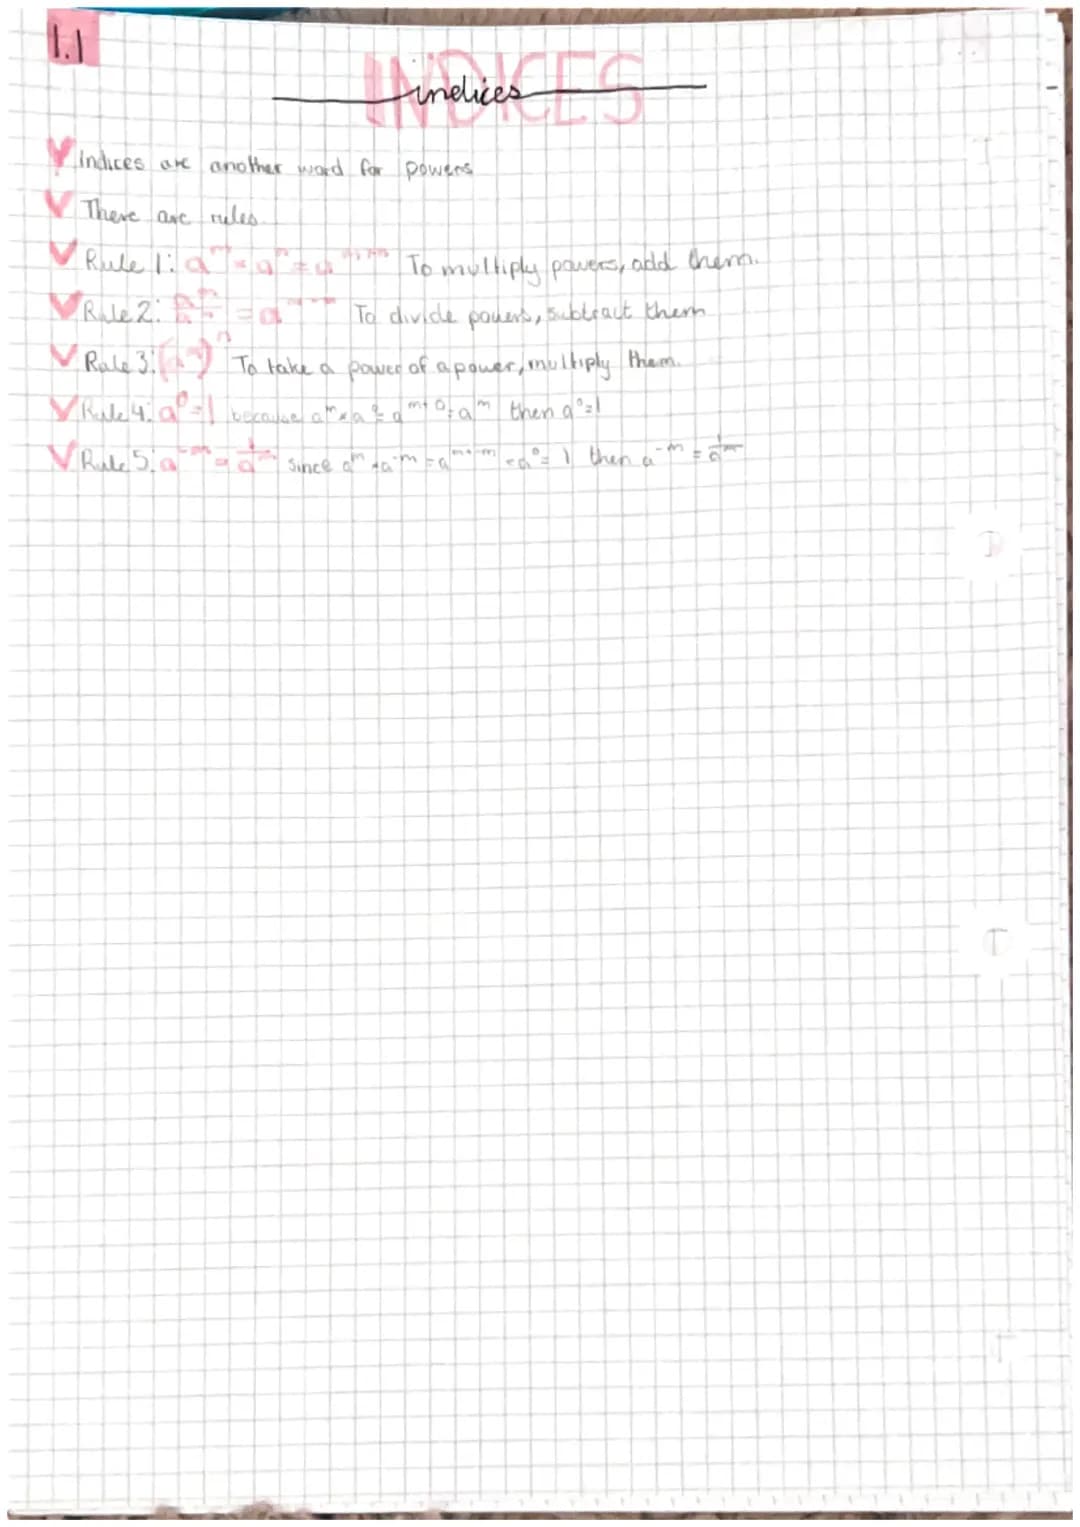 1.1
INDICES
indices
Indices are another word for powers
There are rules
Rule 1: aᵐ × aⁿ = aᵐ⁺ⁿ To multiply powers, add them.
Rule 2: = a To divide powers, subtract them
Rule 3: To take a power of a power, multiply them.
Rule 4: a⁰=1 because aᵐ × a⁰ = aᵐ⁺⁰ = aᵐ then a⁰=1
Rule 5: a⁻ᵐ = 1/aᵐ since aᵐ × a⁻ᵐ = aᵐ⁺⁻ᵐ = a⁰ = 1 then a⁻ᵐ = 1/aᵐ